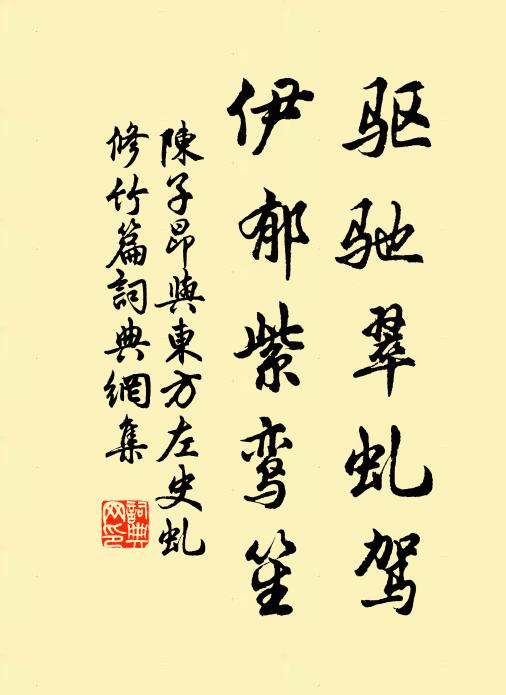 驱驰翠虬驾
伊郁紫鸾笙
陳子昂與東方左史虬
修竹篇詞典網集
詞典
网印